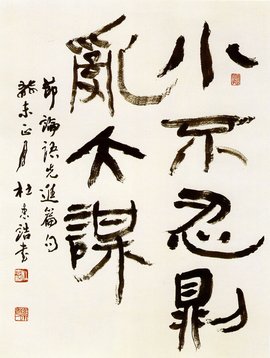 小不忍則
亂大謀
節論語先進篇句
癸未正月 杜忠誥書